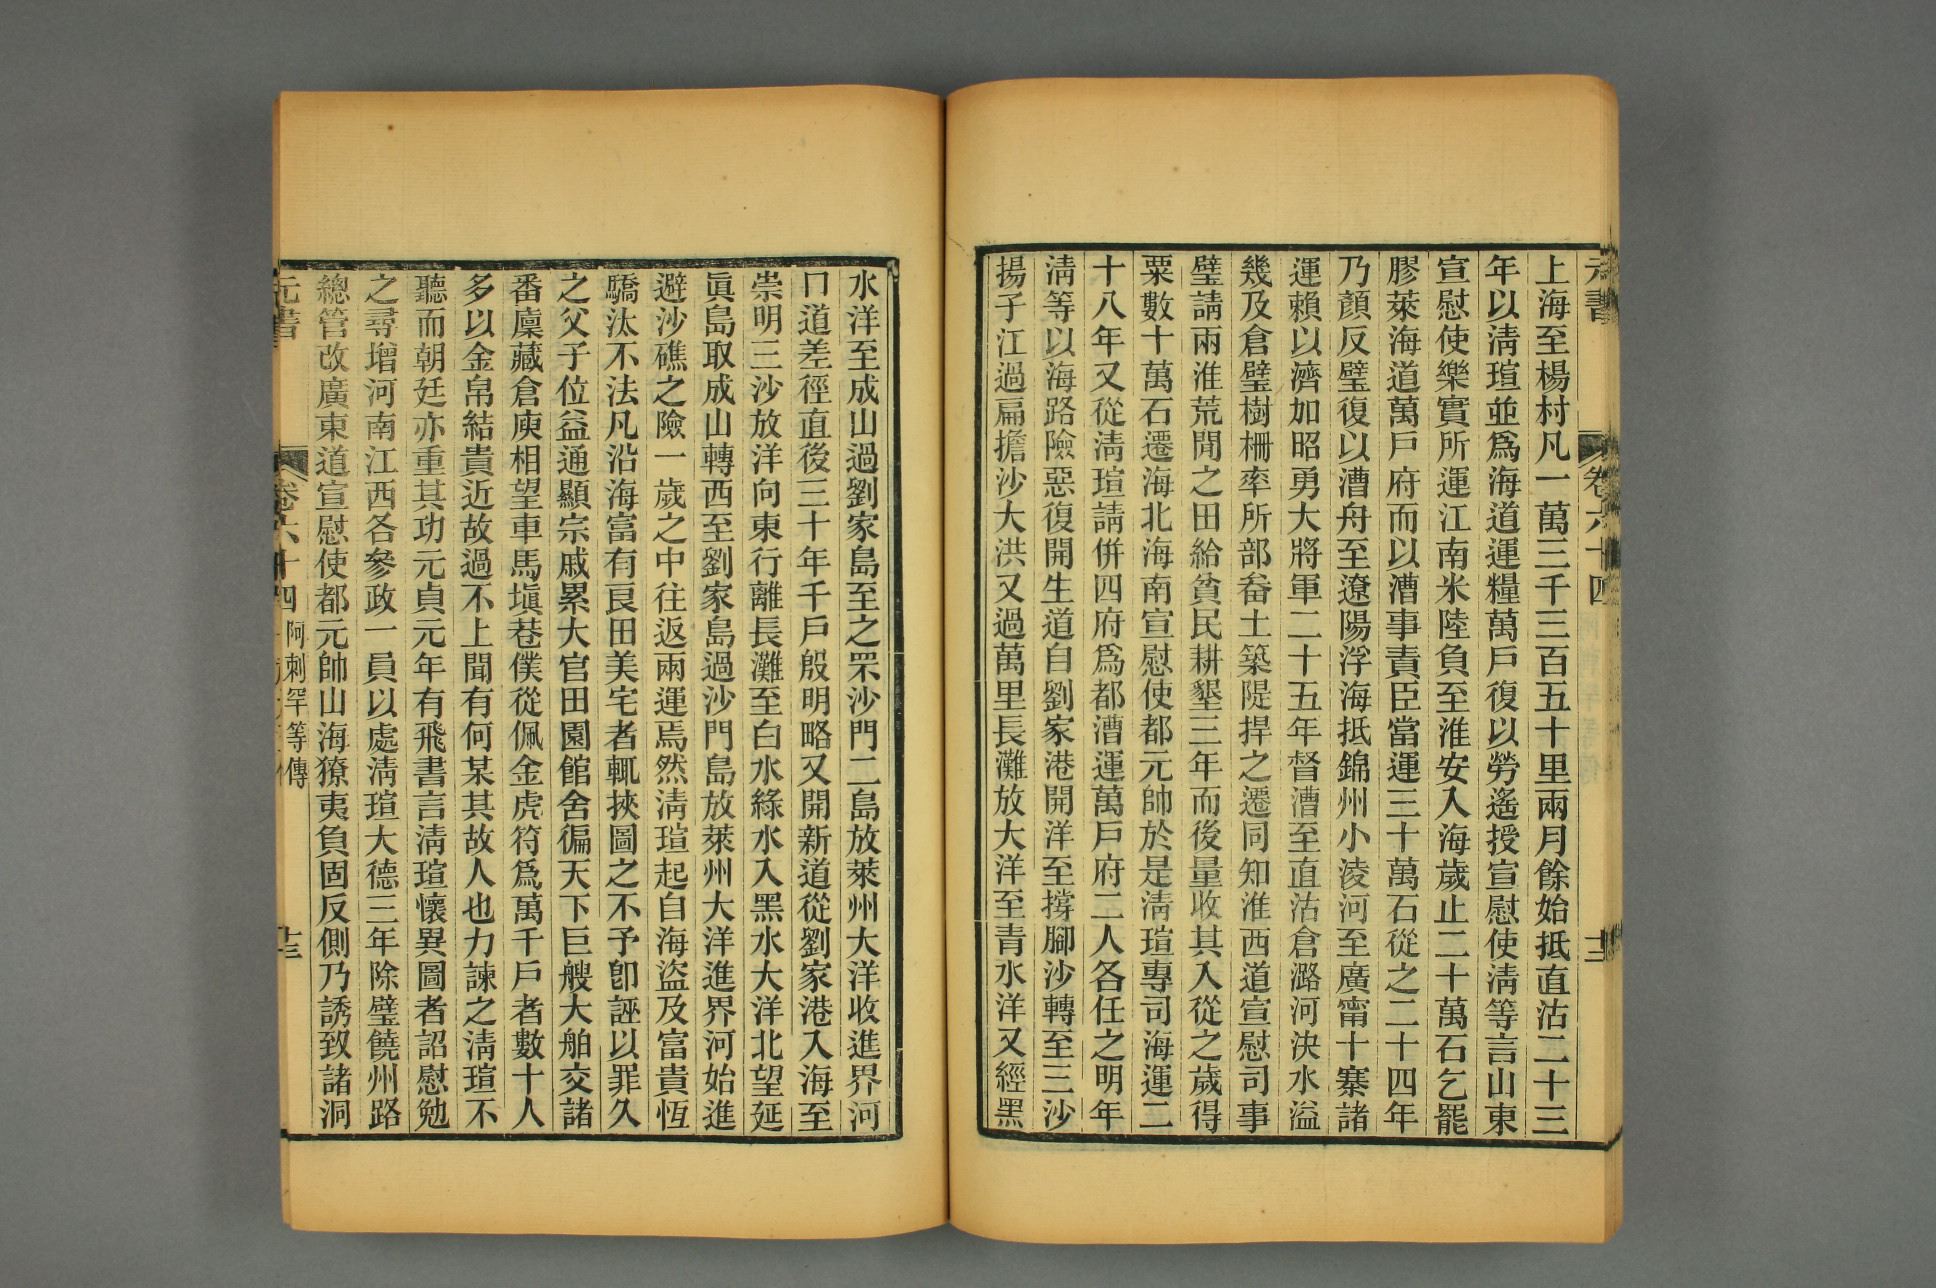 元書 卷六十四 十二
上海至楊村凡一萬三千三百五十里兩月餘始抵直沽二十三
年以淸瑄並爲海道運糧萬戶復以勞遙授宣慰使淸等言山東
宣慰使樂實所運江南米陸負至淮安入海歲止二十萬石乞罷
膠萊海道萬戶府而以漕事責臣當運三十萬石從之二十四年
乃顏反璧復以漕舟至遼陽浮海抵錦州小淩河至廣甯十寨諸
運賴以濟加昭勇大將軍二十五年督漕至直沽倉潞河決水溢
幾及倉璧樹柵率所部畚土築隄捍之遷同知淮西道宣慰司事
璧請兩淮荒閒之田給貧民耕墾三年而後量收其入從之歲得
粟數十萬石遷海北海南宣慰使都元帥於是淸瑄專司海運二
十八年又從淸瑄請併四府爲都漕運萬戶府二人各任之明年
淸等以海路險惡復開生道自劉家港開洋至撐腳沙轉至三沙
揚子江過扁擔沙大洪又過萬里長灘放大洋至青水洋又經黑
水洋至成山過劉家島至之罘沙門二島放萊州大洋收進界河
口道差徑直後三十年千戶殷明略又開新道從劉家港入海至
崇明三沙放洋向東行離長灘至白水綠水入黑水大洋北望延
眞島取成山轉西至劉家島過沙門島放萊州大洋進界河始進
避沙礁之險一歲之中往返兩運焉然淸瑄起自海盜及富貴恆
驕汰不法凡沿海富有良田美宅者輒挾圖之不予卽誣以罪久
之父子位益通顯宗戚累大官田園館舍徧天下巨艘大舶交諸
番廩藏倉庾相望車馬塡巷僕從佩金虎符爲萬千戶者數十人
多以金帛結貴近故過不上聞有何某其故人也力諫之淸瑄不
聽而朝廷亦重其功元貞元年有飛書言淸瑄懷異圖者詔慰勉
之尋增河南江西各參政一員以處淸瑄大德三年除璧饒州路
總管改廣東道宣慰使都元帥山海獠夷負固反側乃誘致諸洞
元書 卷六十四 阿剌罕等傳 十三